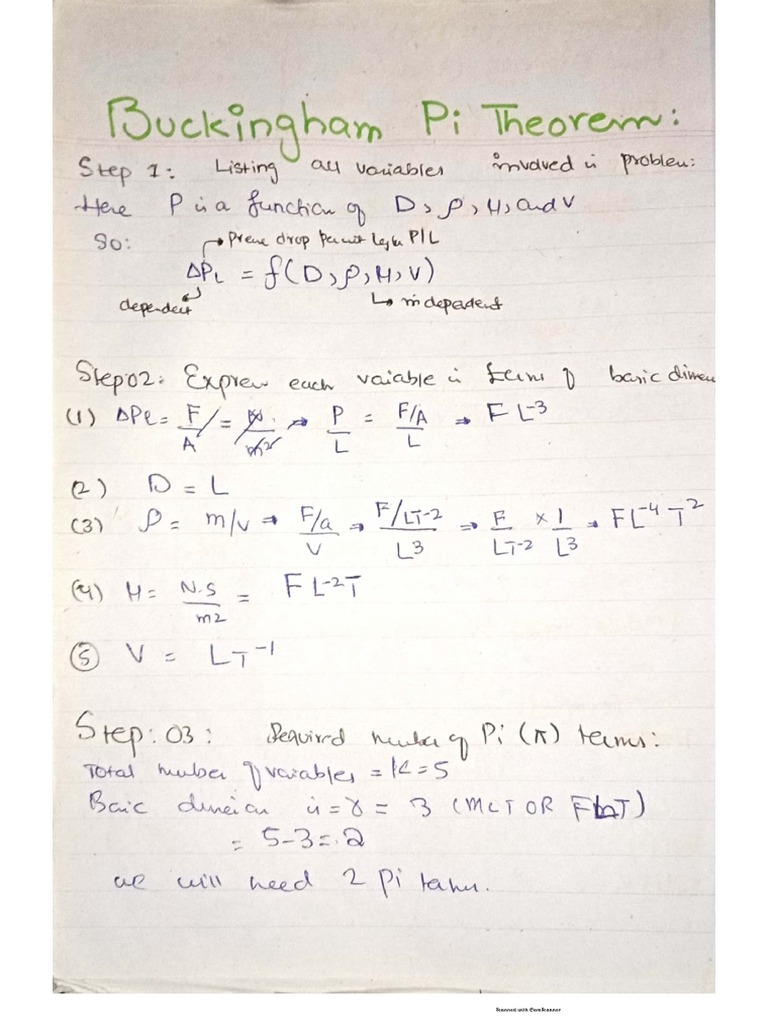 Buckingham Pi Theorem:
Step 1: Listing all variables involved in problem:
Here P is a function of D, ρ, μ, and V
So:
→ Pressure drop per unit length P/L
ΔPL = f(D, ρ, μ, V)
dependent ↳ independent
Step 02: Express each variable in terms of basic dimen
(1) ΔPl = F/A = → P/L = F/A/L → FL⁻³
(2) D = L
(3) ρ = m/v → F/a/V → F/LT⁻²/L³ → F/LT⁻² × 1/L³ → FL⁻⁴T²
(4) μ = N.S/m2 = FL⁻²T
(5) V = LT⁻¹
Step: 03: Required number of Pi (π) terms:
Total number of variables = K = 5
Basic dimension is = r = 3 (MLT OR FLT)
= 5-3 = 2
we will need 2 Pi
Scanned with CamScanner